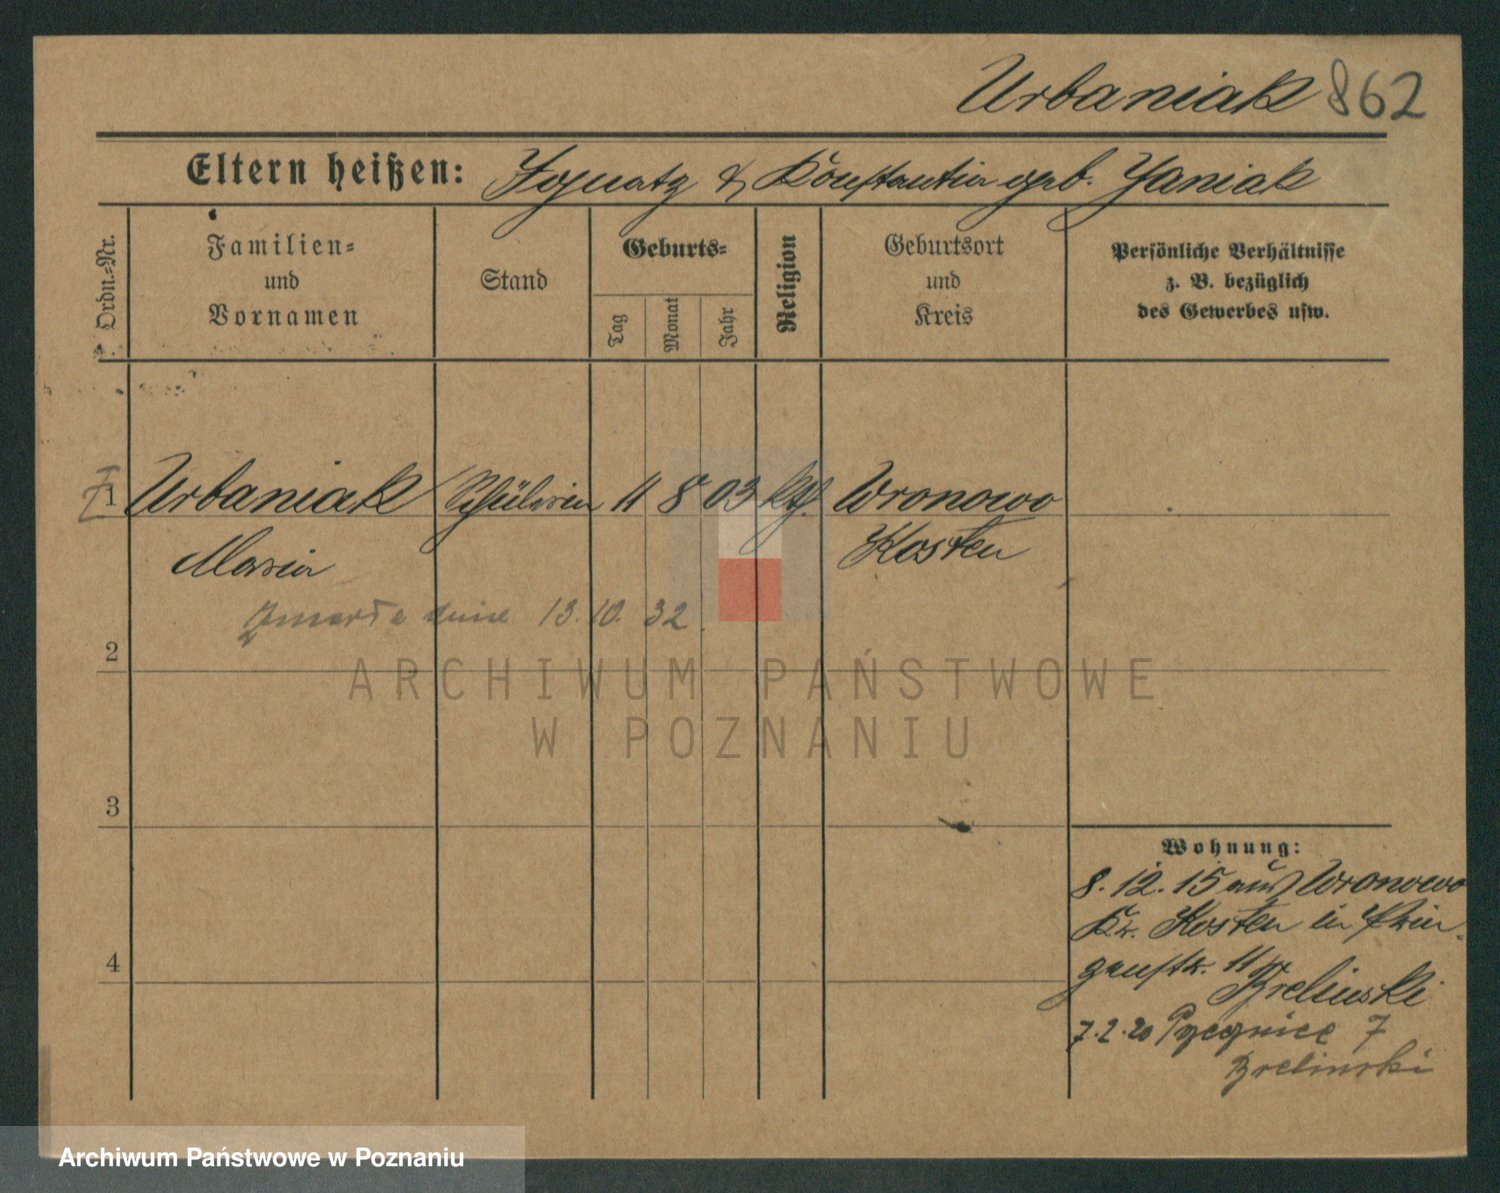 Urbaniak 862
Eltern heißen: Ignatz & Konstantia geb. Janiak
Ordn.-Nr.
Familien-
und
Vornamen
Stand
Geburts-
Tag
Monat
Jahr
Religion
Geburtsort
und
Kreis
Persönliche Verhältnisse
z. B. bezüglich
des Gewerbes usw.
1 Urbaniak Schülerin 11 8 03 kth. Wronowo
Maria Kosten
Zmarła dnia 13.10.32
2
3
4
Wohnung:
8.12.15 aus Wronowo
Kr. Kosten in
11
Brelinski
7.2.20 7
Brelinski
ARCHIWUM PAŃSTWOWE
W POZNANIU
Archiwum Państwowe w Poznaniu